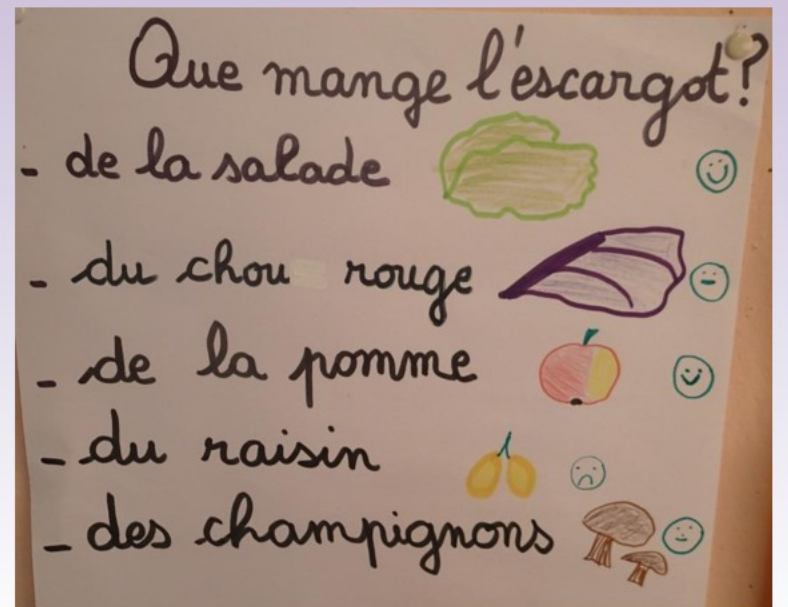 Que mange l'escargot?
- de la salade
- du chou rouge
- de la pomme
- du raisin
- des champignons